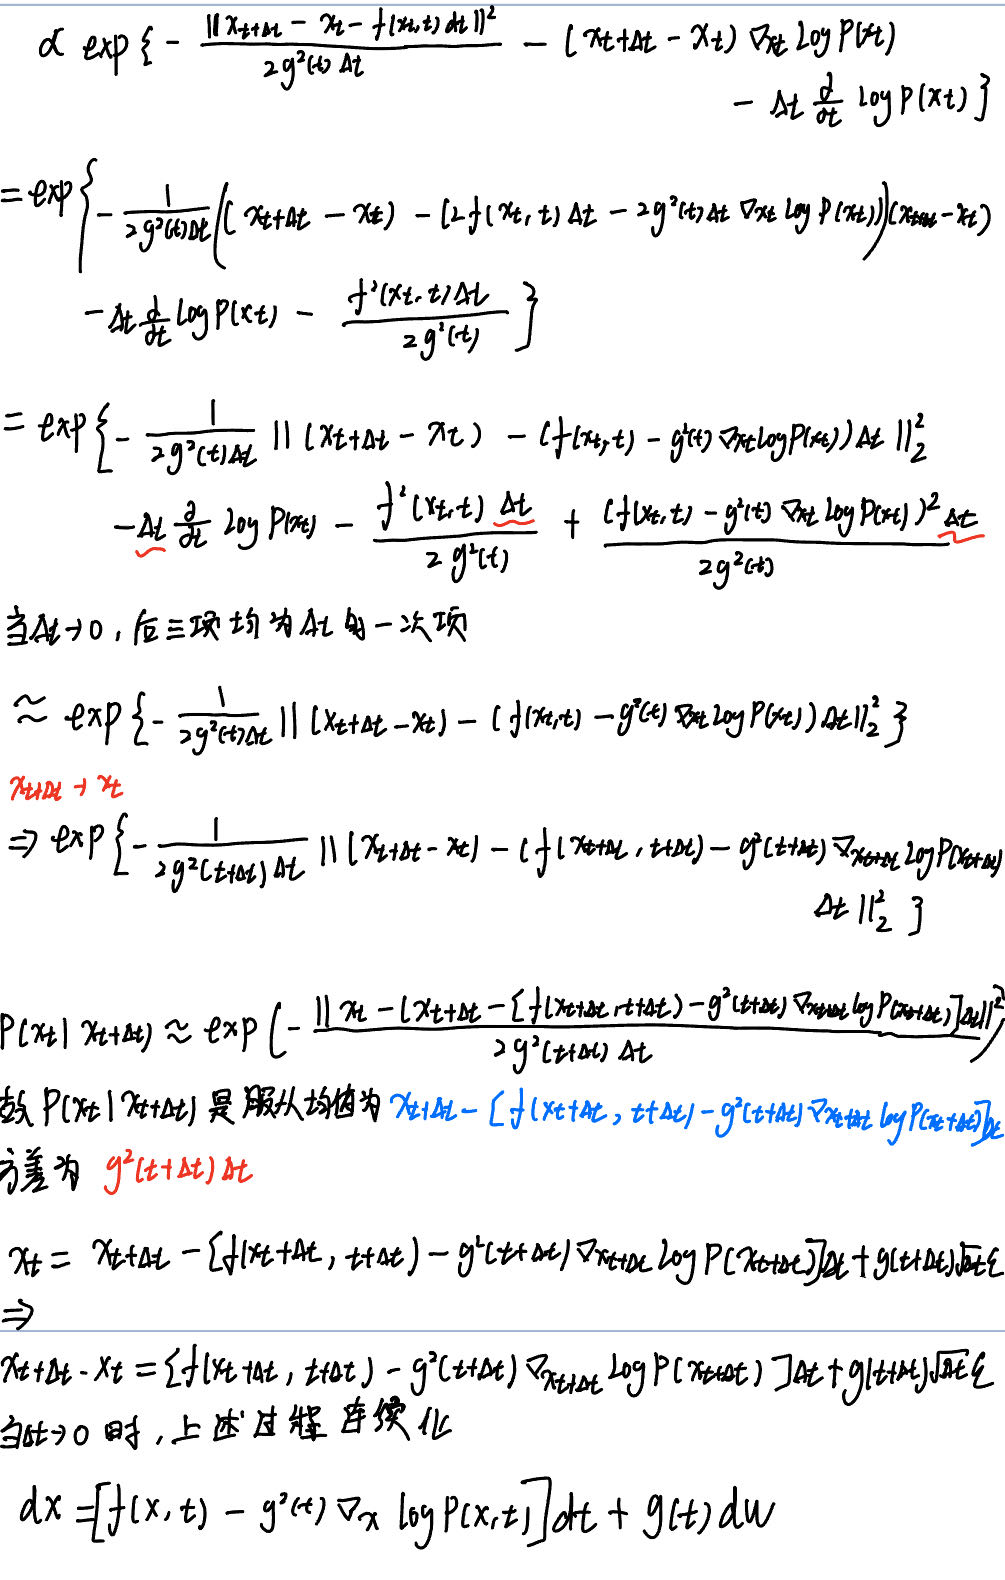 ∝ exp{ - ||x_{t+Δt} - x_t - f(x_t,t)dt||² / 2g²(t)Δt - (x_{t+Δt} - x_t) ∇_{x_t} log P(x_t)
- Δt ∂/∂t log P(x_t) }
= exp{ - 1/(2g²(t)Δt) (( x_{t+Δt} - x_t) - (2f(x_t,t)Δt - 2g²(t)Δt ∇_{x_t} log P(x_t)))(x_{t+Δt} - x_t)
- Δt ∂/∂t log P(x_t) - f²(x_t,t)Δt / 2g²(t) }
= exp{ - 1/(2g²(t)Δt) ||(x_{t+Δt} - x_t) - (f(x_t,t) - g²(t)∇_{x_t} log P(x_t))Δt||₂²
- Δt ∂/∂t log P(x_t) - f²(x_t,t)Δt / 2g²(t) + (f(x_t,t) - g²(t)∇_{x_t} log P(x_t))²Δt / 2g²(t)
当Δt→0,后三项均为Δt的一次项
≈ exp{ - 1/(2g²(t)Δt) ||(x_{t+Δt} - x_t) - (f(x_t,t) - g²(t)∇_{x_t} log P(x_t))Δt||₂² }
x_{t+Δt} → x_t
⇒ exp{ - 1/(2g²(t+Δt)Δt) ||(x_{t+Δt} - x_t) - (f(x_{t+Δt}, t+Δt) - g²(t+Δt)∇_{x_{t+Δt}} log P(x_{t+Δt})
Δt||₂² }
P(x_t|x_{t+Δt}) ≈ exp( - ||x_t - (x_{t+Δt} - [f(x_{t+Δt}, t+Δt) - g²(t+Δt)∇_{x_{t+Δt}} log P(x_{t+Δt})]Δt||² / 2g²(t+Δt)Δt )
故 P(x_t|x_{t+Δt}) 是服从均值为 x_{t+Δt} - [f(x_{t+Δt}, t+Δt) - g²(t+Δt)∇_{x_{t+Δt}} log P(x_{t+Δt})]Δt
方差为 g²(t+Δt)Δt
x_t = x_{t+Δt} - [f(x_{t+Δt}, t+Δt) - g²(t+Δt)∇_{x_{t+Δt}} log P(x_{t+Δt})]Δt + g(t+Δt)√Δt ε
⇒
x_{t+Δt} - x_t = [f(x_{t+Δt}, t+Δt) - g²(t+Δt)∇_{x_{t+Δt}} log P(x_{t+Δt})]Δt + g(t+Δt)√Δt ε
当Δt→0时,上述过程连续化
dx = [f(x,t) - g²(t)∇_x log P(x,t)]dt + g(t)dw